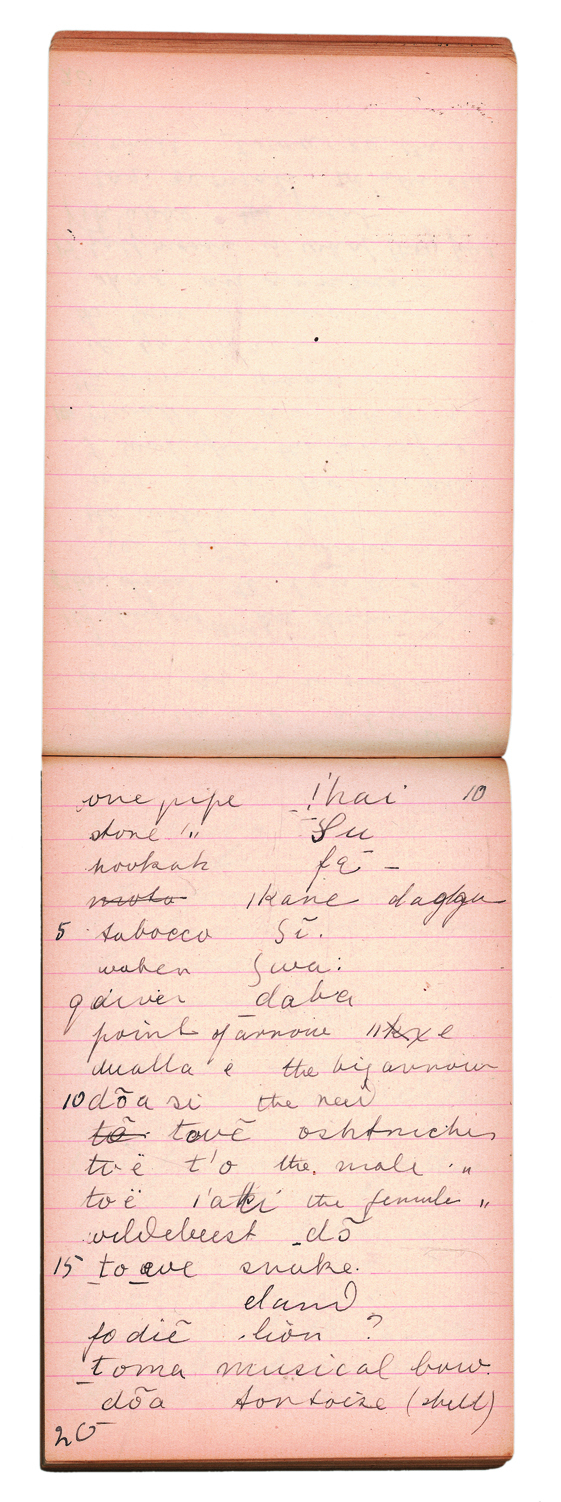 one pipe !'hai 10
stone " Su
hookah fã –
moto ıkane dagga
5 tabocco ʃĩ.
ʃwa:
qaiver daba
point of arrow
the big arrow
10 dõa si the
tõ tovẽ oshtriches
tvë t'o the male "
toë the female "
wildebeest dõ
15 to ave snake.
eland
fo diẽ lion ?
toma musical bow.
dõa tortoize (shell)
20